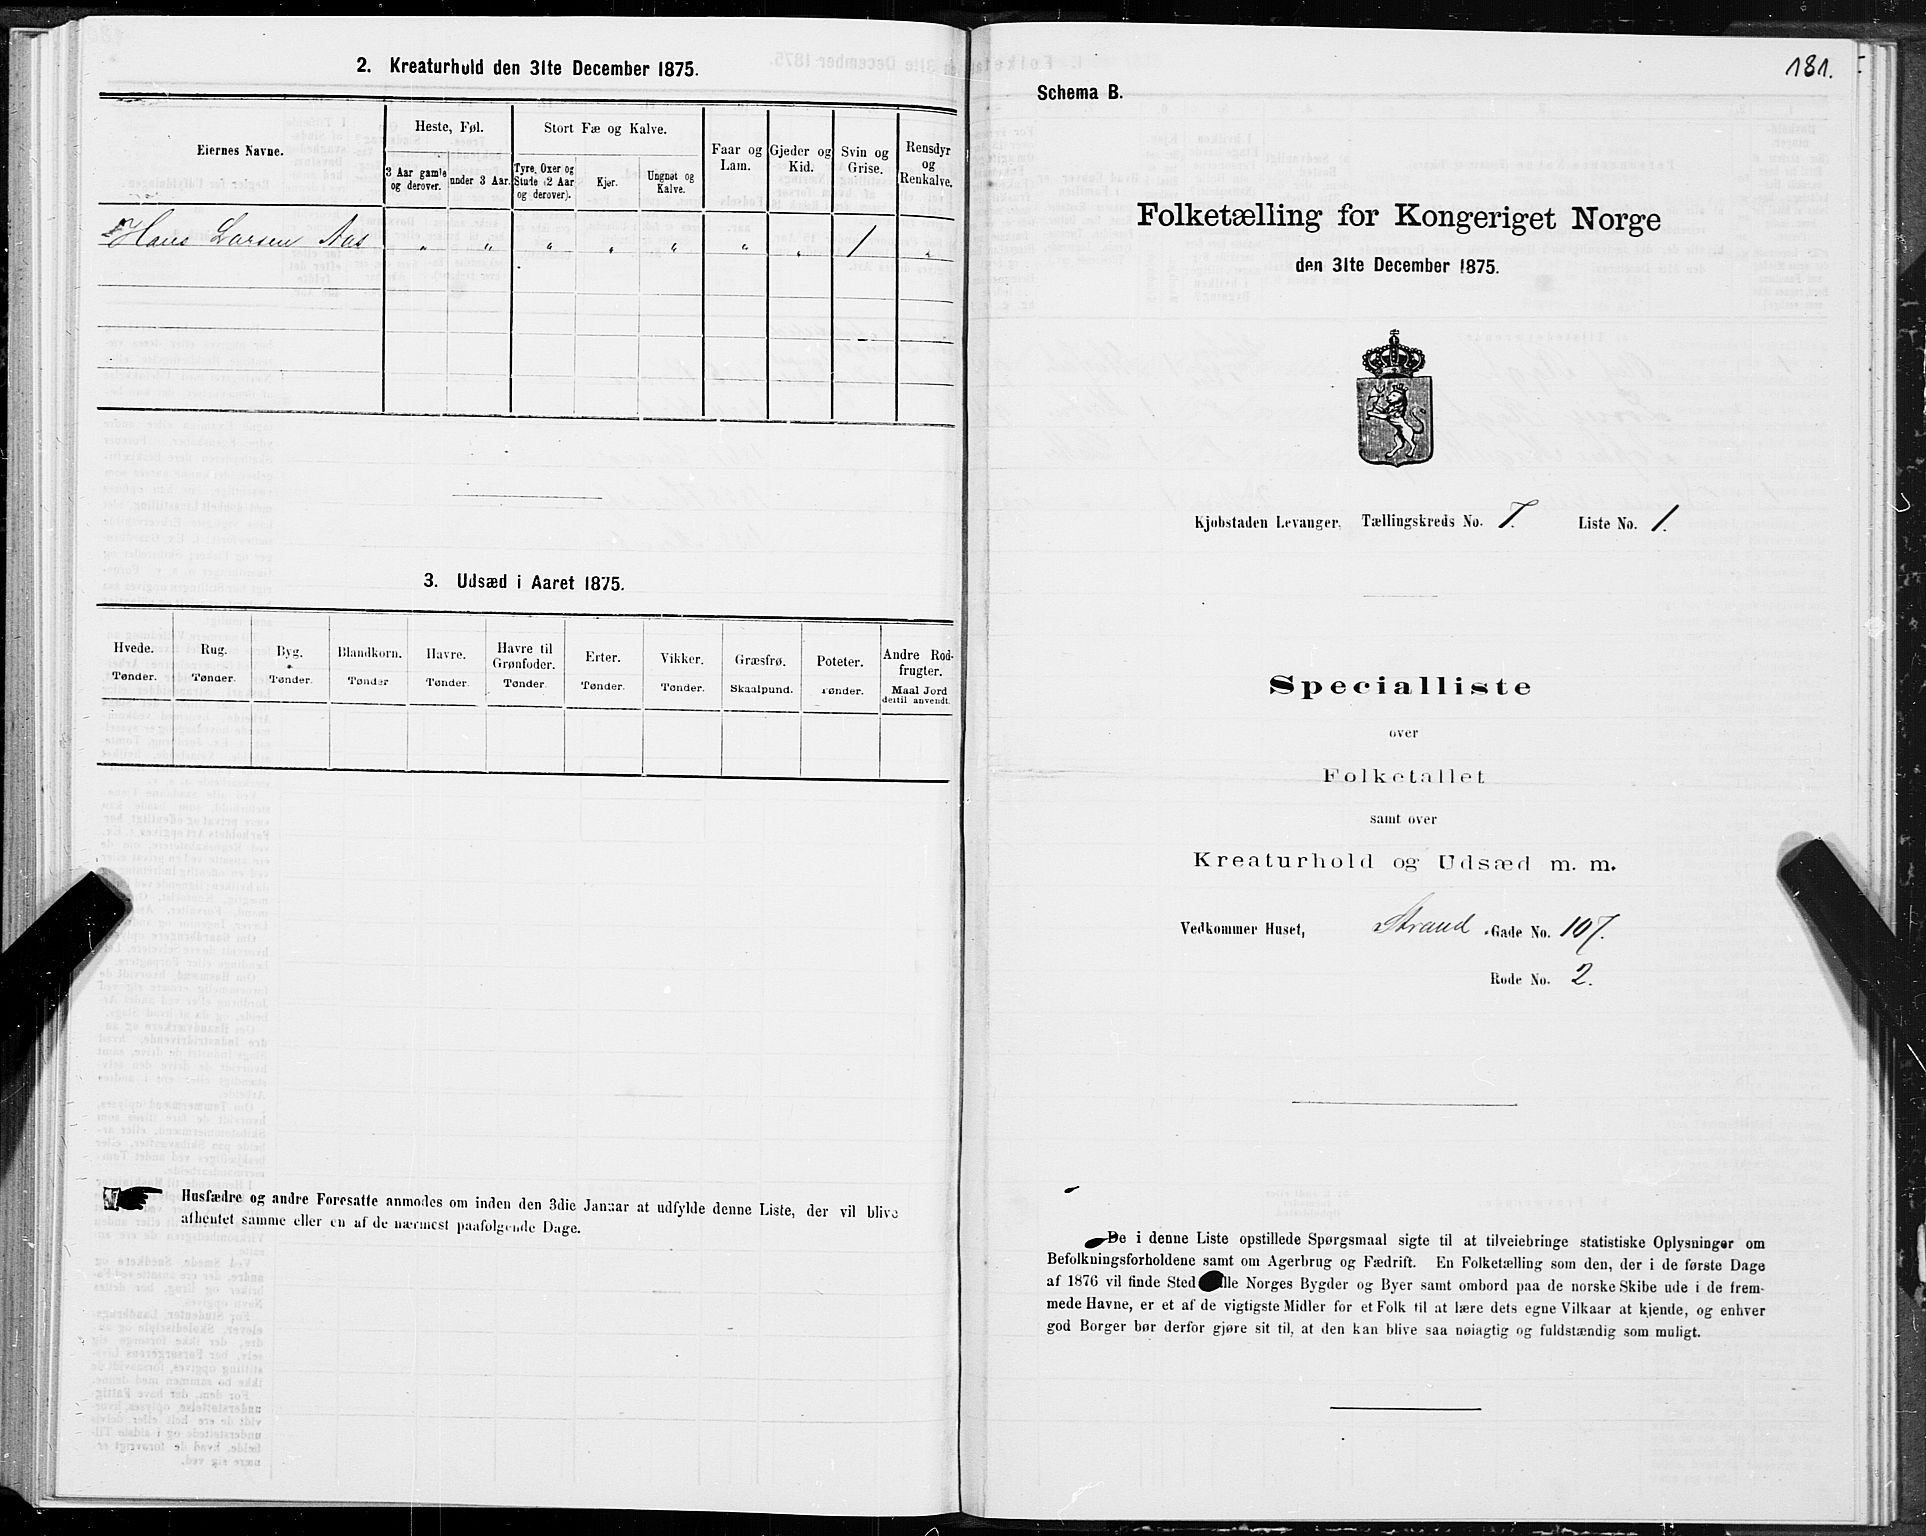 2. Kreaturhold den 31te December 1875.
Eiernes Navne.
Heste, Føl.
Stort Fæ og Kalve.
Faar og Lam.
Gjeder og Kid.
Svin og Grise.
Rensdyr og Renkalve.
3 Aar gamle og derover.
under 3 Aar.
Tyre, Oxer og Stude (2 Aar og derover).
Kjør.
Ungnøt og Kalve.
Hans Larsen Aas " " " " " " " 1 "
3. Udsæd i Aaret 1875.
Hvede. Rug. Byg. Blandkorn. Havre. Havre til Grønfoder. Erter. Vikker. Græsfrø. Poteter. Andre Rodfrugter.
Tønder. Tønder. Tønder. Tønder Tønder. Tønder. Tønder. Tønder. Skaalpund. Tønder. Maal Jord dertil anvendt.
Husfædre og andre Foresatte anmodes om inden den 3die Januar at udfylde denne Liste, der vil blive
afhentet samme eller en af de nærmest paafølgende Dage.
181.
Schema B.
Folketælling for Kongeriget Norge
den 31te December 1875.
Kjøbstaden Levanger, Tællingskreds No. 7. Liste No. 1.
Specialliste
over
Folketallet
samt over
Kreaturhold og Udsæd m. m.
Vedkommer Huset, Strand-Gade No. 107.
Rode No. 2.
De i denne Liste opstillede Spørgsmaal sigte til at tilveiebringe statistiske Oplysninger om
Befolkningsforholdene samt om Agerbrug og Fædrift. En Folketælling som den, der i de første Dage
af 1876 vil finde Sted alle Norges Bygder og Byer samt ombord paa de norske Skibe ude i de frem-
mede Havne, er et af de vigtigste Midler for et Folk til at lære dets egne Vilkaar at kjende, og enhver
god Borger bør derfor gjøre sit til, at den kan blive saa nøiagtig og fuldstændig som muligt.